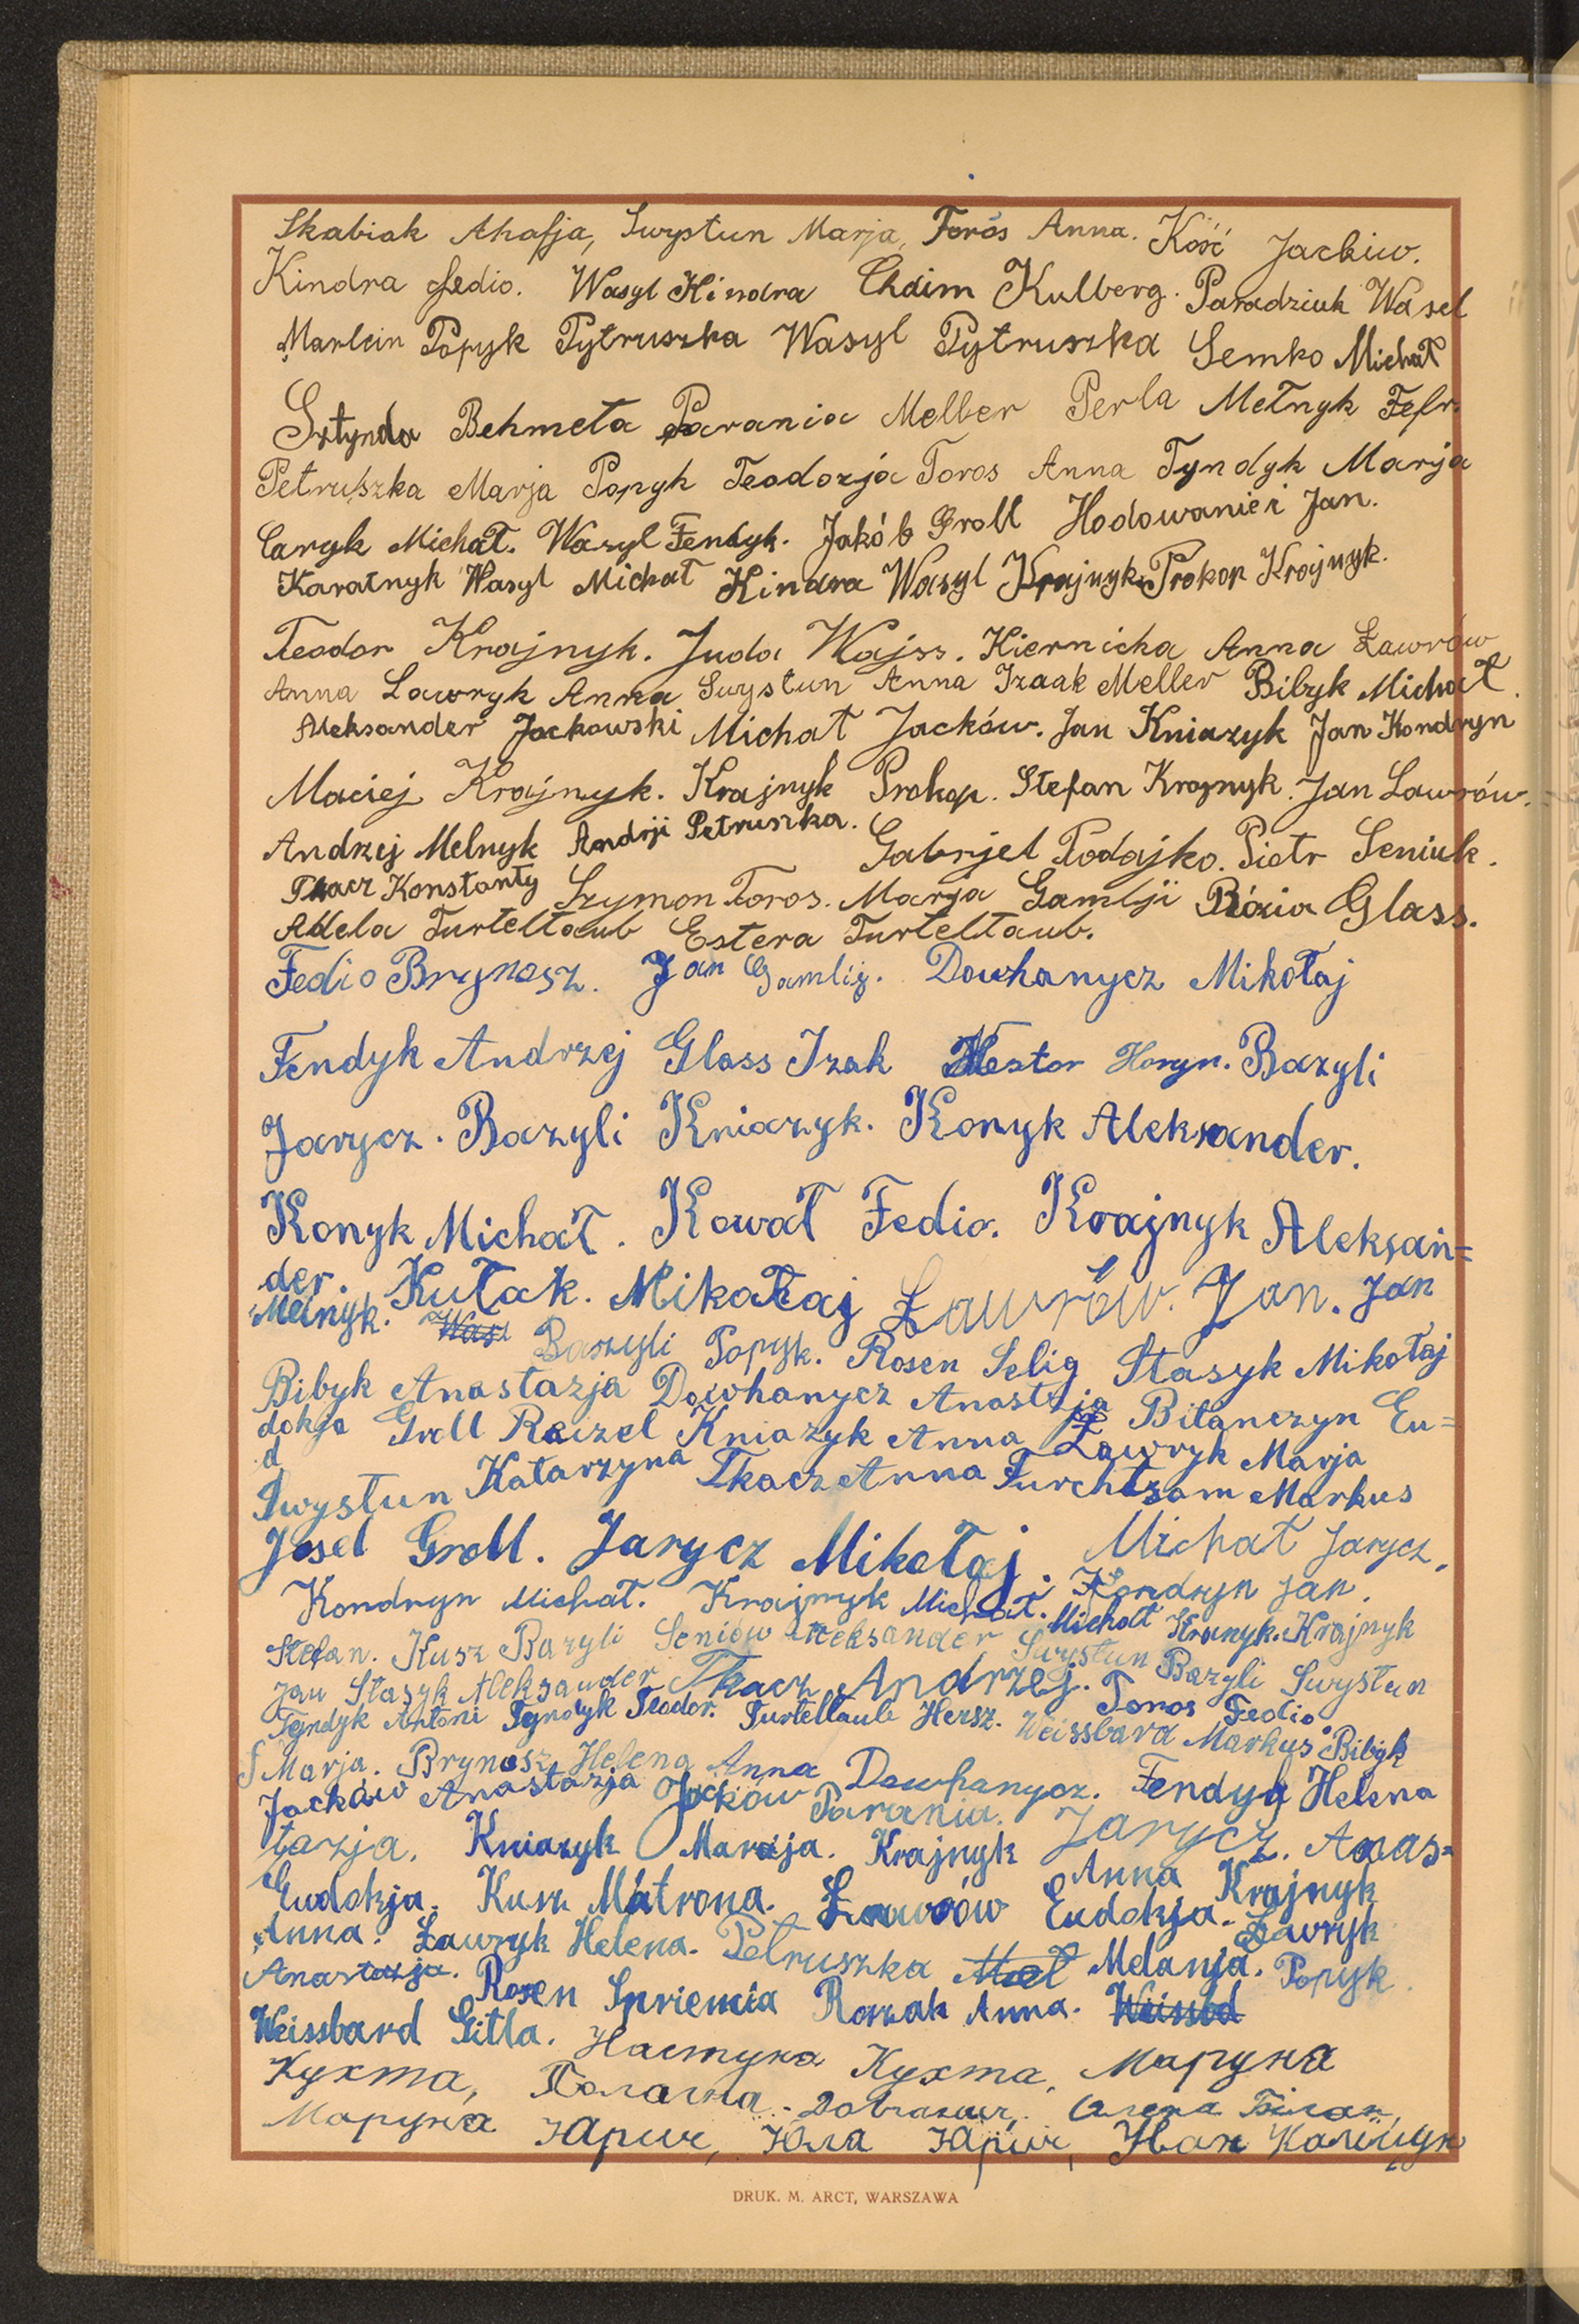 Skabiak Ahafja, Swystun Marja, Toros Anna. Kość Jackiw.
Kindra Fedio. Wasyl Kindra Chaim Kulberg. Paradziuk Wasel
Marlein Popyk Pytruszka Wasyl Pytruszka Semko Michał
Sztynda Behmeta Parania Melber Perla Mełnyk Fefr.
Petruszka Marja Popyk Teodozja Toros Anna Tyndyk Marja
Caryk Michał. Wasyl Fendyk. Jakób Groll Hodowaniei Jan.
Karatnyk Wasyl Michał Kindra Wasyl Krajnyk Prokop Krajnyk.
Teodor Krajnyk. Juda Wajss. Kiernicka Anna Ławrów
Anna Lawryk Anna Swystun Anna Izaak Meller Bibyk Michał.
Aleksander Jackowski Michał Jacków. Jan Kniazyk Jan Kondryn
Maciej Krajnyk. Krajnyk Prokop. Stefan Krajnyk. Jan Lawrów.
Andrzej Melnyk Andrji Petruszka. Gabrjel Podajko. Piotr Seniuk.
Tkacz Konstanty Szymon Toros. Marja Gamlji Rózia Glass.
Adela Turteltaub Estera Turteltaub.
Fedio Brynosz. Jan Gamlij. Dowhanycz Mikołaj
Fendyk Andrzej Glass Izak Nestor Horyn. Bazyli
Jarycz. Bazyli Kniazyk. Konyk Aleksander.
Konyk Michał. Kował Fedio. Krajnyk Aleksan=
der. Kułak. Mikołaj Ławrów. Jan. Jan
Melnyk. Bazyli Popyk. Rosen Selig Stasyk Mikołaj
Bibyk Anastazja Dowhanycz Anastzja Bilanczyn Eu=
dokja Groll Reizel Kniazyk Anna Ławryk Marja
d
Swystun Katarzyna Tkacz Anna Furchtsam Markus
Josel Groll. Jarycz Mikołaj. Michał Jarycz.
Kondryn Michał. Krajnyk Michał. Kondryn Jan.
Stefan. Kusz Bazyli Seniów Aleksander Michał Kranyk. Krajnyk
Jan Stasyk Aleksander Tkacz Andrzej. Swystun Bazyli Swystun
Tyndyk Antoni Tyndyk Teodor. Turteltaub Hersz. Toros Fedio
Marja. Brynosz Helena Anna Weissbard Markus Bibyk
Jacków Anastazja Jacków Dowhanycz. Fendyk Helena
tazja. Kniazyk Marja. Parania. Krajnyk Jarycz. Anas=
Eudokja. Kusz Matrona. Ławrów Anna Eudokja. Krajnyk
Anna. Ławryk Helena. Petruszka Melanja. Ławryk
Anastazja. Rosen Rozak Anna. Popyk
Weissbard Gitla. Настуня Кухта, Маруня
Кухта,
Маруня Юла Іван